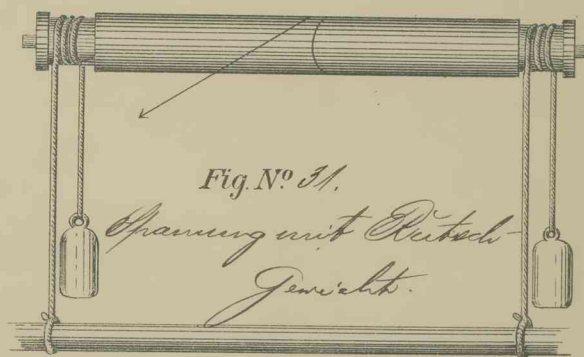 Fig. Nº 31.
Spannung mit Rutsch-
Gewicht.